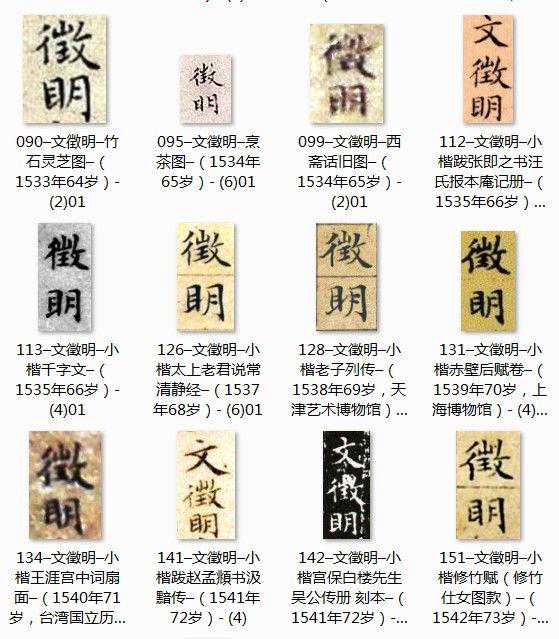 徵明
090–文徵明–竹
石灵芝图–（
1533年64岁）-
(2)01
徵明
095–文徵明–烹
茶图–（1534年
65岁）- (6)01
徵明
099–文徵明–西
斋话旧图–（
1534年65岁）-
(2)01
文徵明
112–文徵明–小
楷跋张即之书汪
氏报本庵记册–（
1535年66岁）...
徵明
113–文徵明–小
楷千字文–（
1535年66岁）-
(4)01
徵明
126–文徵明–小
楷太上老君说常
清静经–（1537
年68岁）- (6)01
徵明
128–文徵明–小
楷老子列传–（
1538年69岁，天
津艺术博物馆）...
徵明
131–文徵明–小
楷赤壁后赋卷–（
1539年70岁，上
海博物馆）- (4)...
徵明
134–文徵明–小
楷王涯宫中词扇
面–（1540年71
岁，台湾国立历...
文徵明
141–文徵明–小
楷跋赵孟頫书汲
黯传–（1541年
72岁）- (4)
文徵明
142–文徵明–小
楷宫保白楼先生
吴公传册 刻本–（
1541年72岁）-...
徵明
151–文徵明–小
楷修竹赋（修竹
仕女图款）–（
1542年73岁）-...